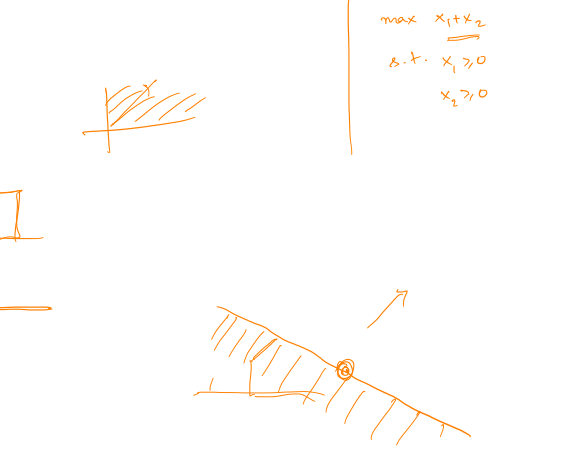 max x₁+x₂
s.t. x₁ ⩾ 0
x₂ ⩾ 0